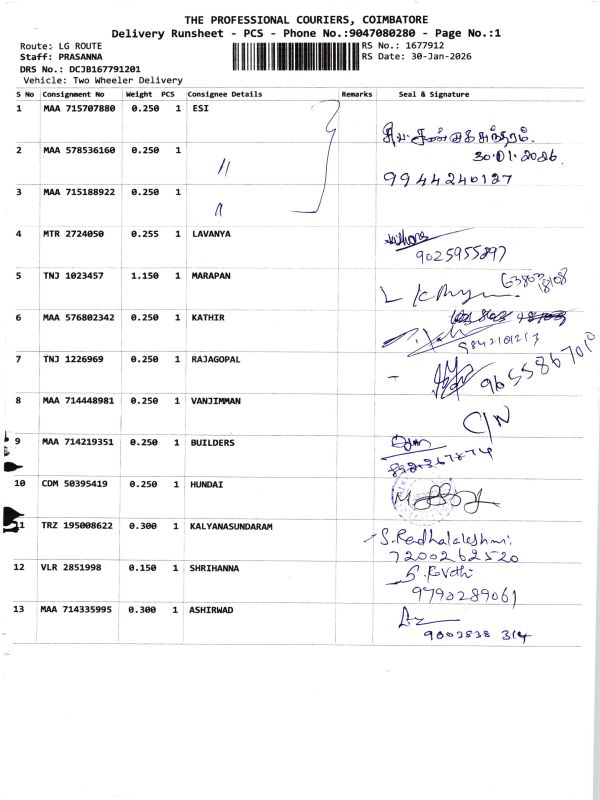 THE PROFESSIONAL COURIERS, COIMBATORE
Delivery Runsheet - PCS - Phone No.:9047080280 - Page No.:1
Route: LG ROUTE
Staff: PRASANNA
DRS No.: DCJB167791201
Vehicle: Two Wheeler Delivery
RS No.: 1677912
RS Date: 30-Jan-2026
S No Consignment No Weight PCS Consignee Details Remarks Seal & Signature
1 MAA 715707880 0.250 1 ESI
30.01.2026.
2 MAA 578536160 0.250 1 "
9944240127
3 MAA 715188922 0.250 1 "
4 MTR 2724050 0.255 1 LAVANYA
9025955897
5 TNJ 1023457 1.150 1 MARAPAN
6 MAA 576802342 0.250 1 KATHIR
9842101213
7 TNJ 1226969 0.250 1 RAJAGOPAL
9655867010
8 MAA 714448981 0.250 1 VANJIMMAN
C/N
9 MAA 714219351 0.250 1 BUILDERS
10 CDM 50395419 0.250 1 HUNDAI
11 TRZ 195008622 0.300 1 KALYANASUNDARAM
S. Radhalakshmi
7200262520
12 VLR 2851998 0.150 1 SHRIHANNA
S. Revathi
9790289061
13 MAA 714335995 0.300 1 ASHIRWAD
9003838 314